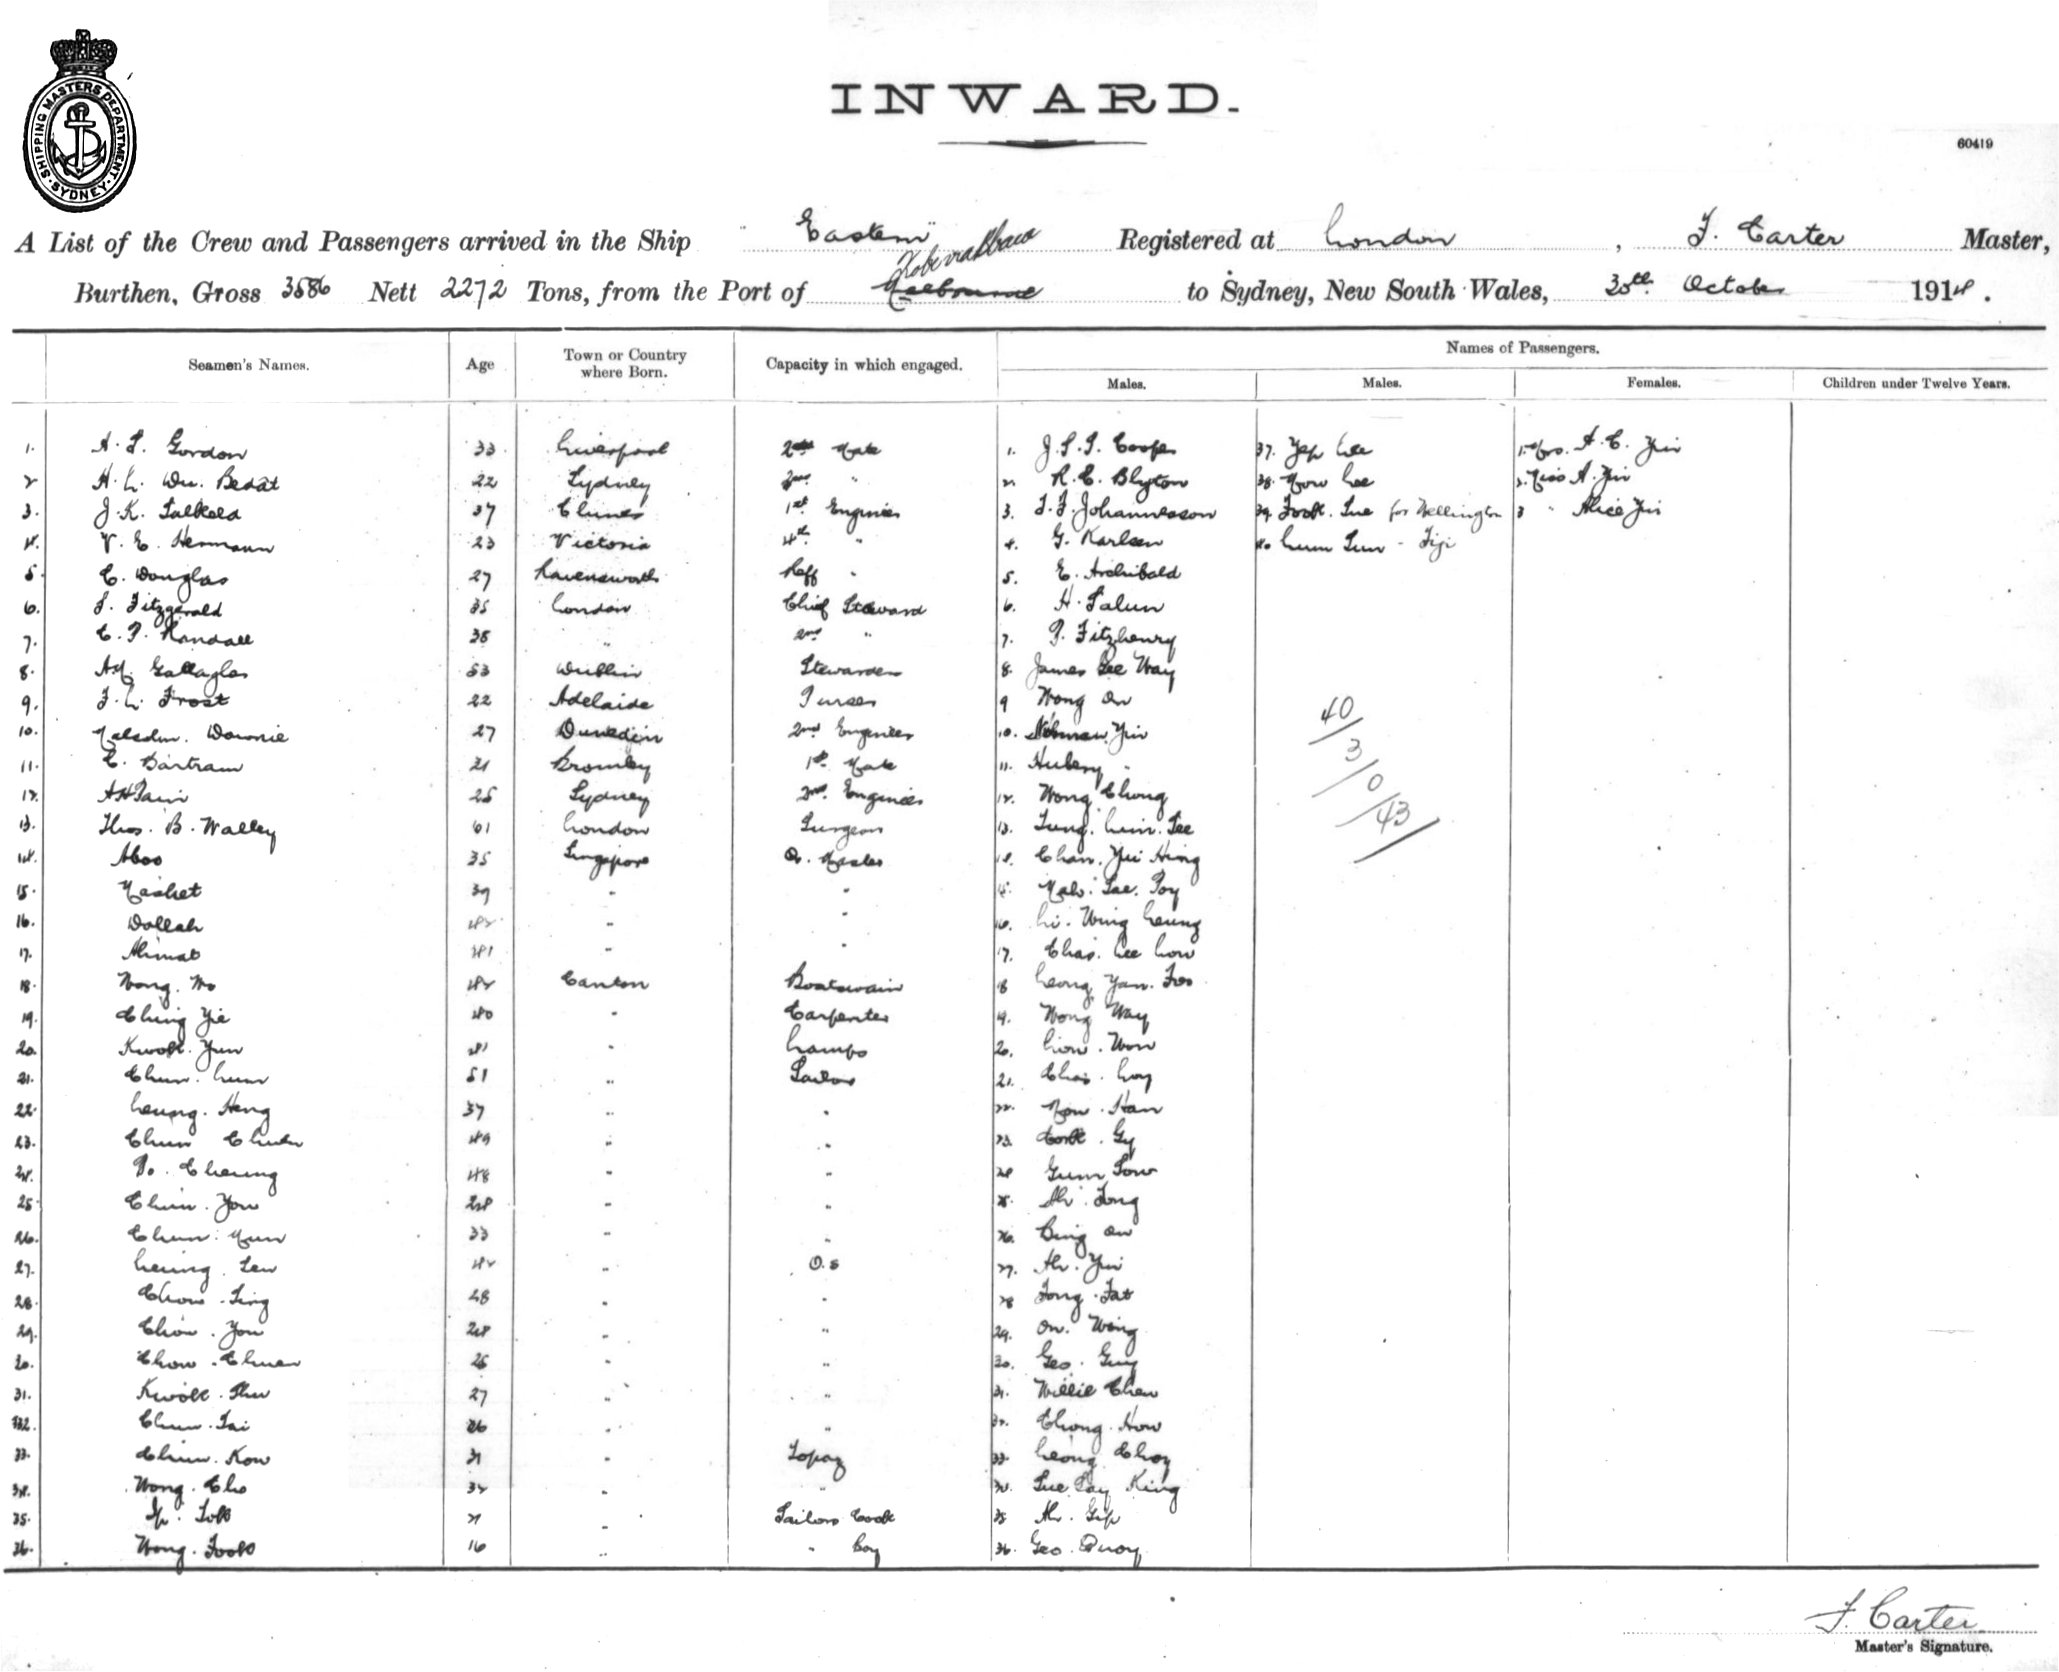 SHIPPING MASTERS DEPARTMENT. SYDNEY.
INWARD.
60419
A List of the Crew and Passengers arrived in the Ship "Eastern" Registered at London, F. Carter Master,
Kobe via
Burthen, Gross 3586 Nett 2272 Tons, from the Port of Melbourne to Sydney, New South Wales, 30th October 1914.
Seamen's Names. Age Town or Country where Born. Capacity in which engaged. Names of Passengers.
Males. Males. Females. Children under Twelve Years.
1. Gordon 33 Liverpool 2nd Mate 1. Cooper 37. Yep Lee 1. Mrs. A. E. Yin
2 22 Sydney 3rd " 2. R. E. Blyton 38. Mow Lee 2. Miss A. Yin
3. J. K. Salkeld 37 Clunes 1st Engineer 3. Johannesson 39. Fook. Sue for Wellington 3 " Alice Yin
4. V. E. Hermann 23 Victoria 4th " 4. G. Karlsen 40 Lum Sun - Fiji
5. C. Douglas 27 Ravensworth Reff " 5. E. Archibald
6. Fitzgerald 35 London Chief Steward 6. H.
7. Randall 38 " 2nd " 7. P. Fitzhenry
8. Gallagher 53 Dublin Stewardess 8. James Gee Way
9. F. L. Frost 22 Adelaide Purser 9 Wong On
10. Malcolm. Downie 27 Dunedin 2nd Engineer 10. Norman Yin
11. C. Bartram 31 Bromley 1st Mate 11. "
12. 25 Sydney 3rd Engineer 12. Wong Chong
13. Thos. B. Walley 61 London Surgeon 13. Lee
14. Aboo 35 Singapore Qr. Master 14. Chan. Yui Hing
15. 39 " " 15.
16. Dollah 42 " " 16. Li. Wing Leung
17. 41 " " 17. Chas. Lee
18. Wong. Wo 42 Canton Boatswain 18 Leong Yan.
19. Ching Yie 40 " Carpenter 19. Wong Way
20. Kwok. Yun 41 " Lamps 20. Won
21. Chun. Lum 51 " Sailor 21. Chas. Loy
22. Leung. Heng 37 " " 22. Han
23. Chun Chuen 49 " " 23. Gy
24. Po. Cheung 48 " " 24 Gum Sow
25 Chun. You 24 " " 25. Ah. Fong
26. Chun. Mun 33 " " 26. Bing On
27. Leung. Sen 42 " O.S 27. Ah. Yin
28. Chow. Sing 28 " " 28 Fong. Fat
29. Chow. You 24 " " 29. On. Wing
30. Chow. Chuen 25 " " 30. Geo. Guy
31. Kwok. 27 " " 31. Willie Chew
32. Chun. Tai 26 " " 32. Chong. How
33. Chun. Kow 31 " Topaz 33. Leong Choy
34. Wong. Cho 32 34. King
35. 21 " Sailors Cook 35 Ah. Gip
36. Wong. Fook 16 " " Boy 36. Geo. Quoy
40/3/0/43
F. Carter
Master's Signature.